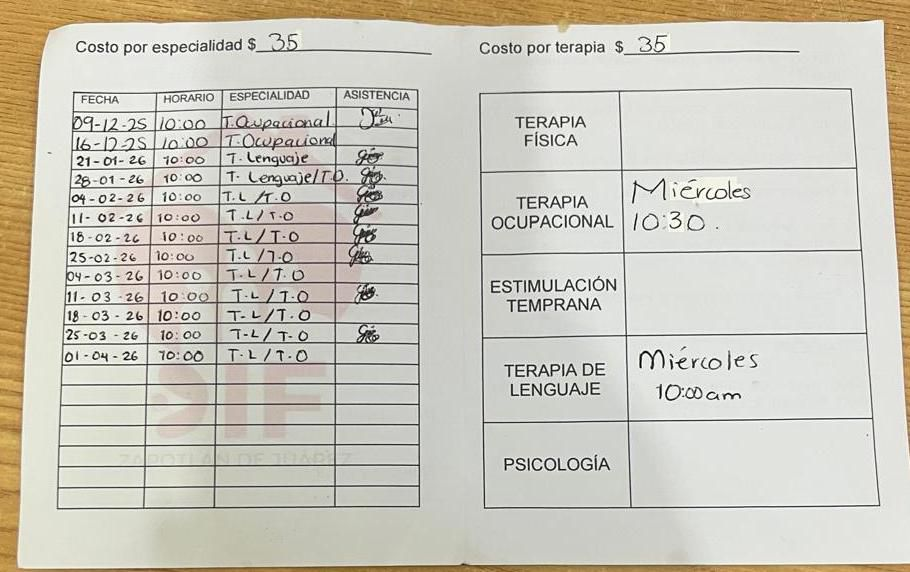 Costo por especialidad $ 35
FECHA HORARIO ESPECIALIDAD ASISTENCIA
09-12-25 10:00 T. Ocupacional
16-12-25 10:00 T. Ocupacional
21-01-26 10:00 T. Lenguaje
28-01-26 10:00 T. Lenguaje/T.O.
04-02-26 10:00 T.L /T.O
11-02-26 10:00 T.L/T.O
18-02-26 10:00 T.L/T-O
25-02-26 10:00 T.L/T-O
04-03-26 10:00 T.L/T.O
11-03-26 10:00 T.L/T.O
18-03-26 10:00 T-L/T.O
25-03-26 10:00 T-L/T-O
01-04-26 10:00 T.L/T.O
DIF
ZAPOTLAN DE JUÁREZ
Costo por terapia $ 35
TERAPIA
FÍSICA
TERAPIA
OCUPACIONAL
Miércoles
10:30.
ESTIMULACIÓN
TEMPRANA
TERAPIA DE
LENGUAJE
Miércoles
10:00 am
PSICOLOGÍA